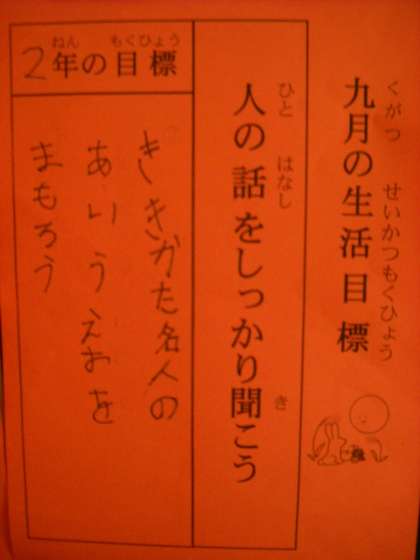 九月の生活目標
くがつ せいかつもくひょう
人の話をしっかり聞こう
ひと はなし き
2年の目標
ねん もくひょう
ききかた名人の
あいうえおを
まもろう